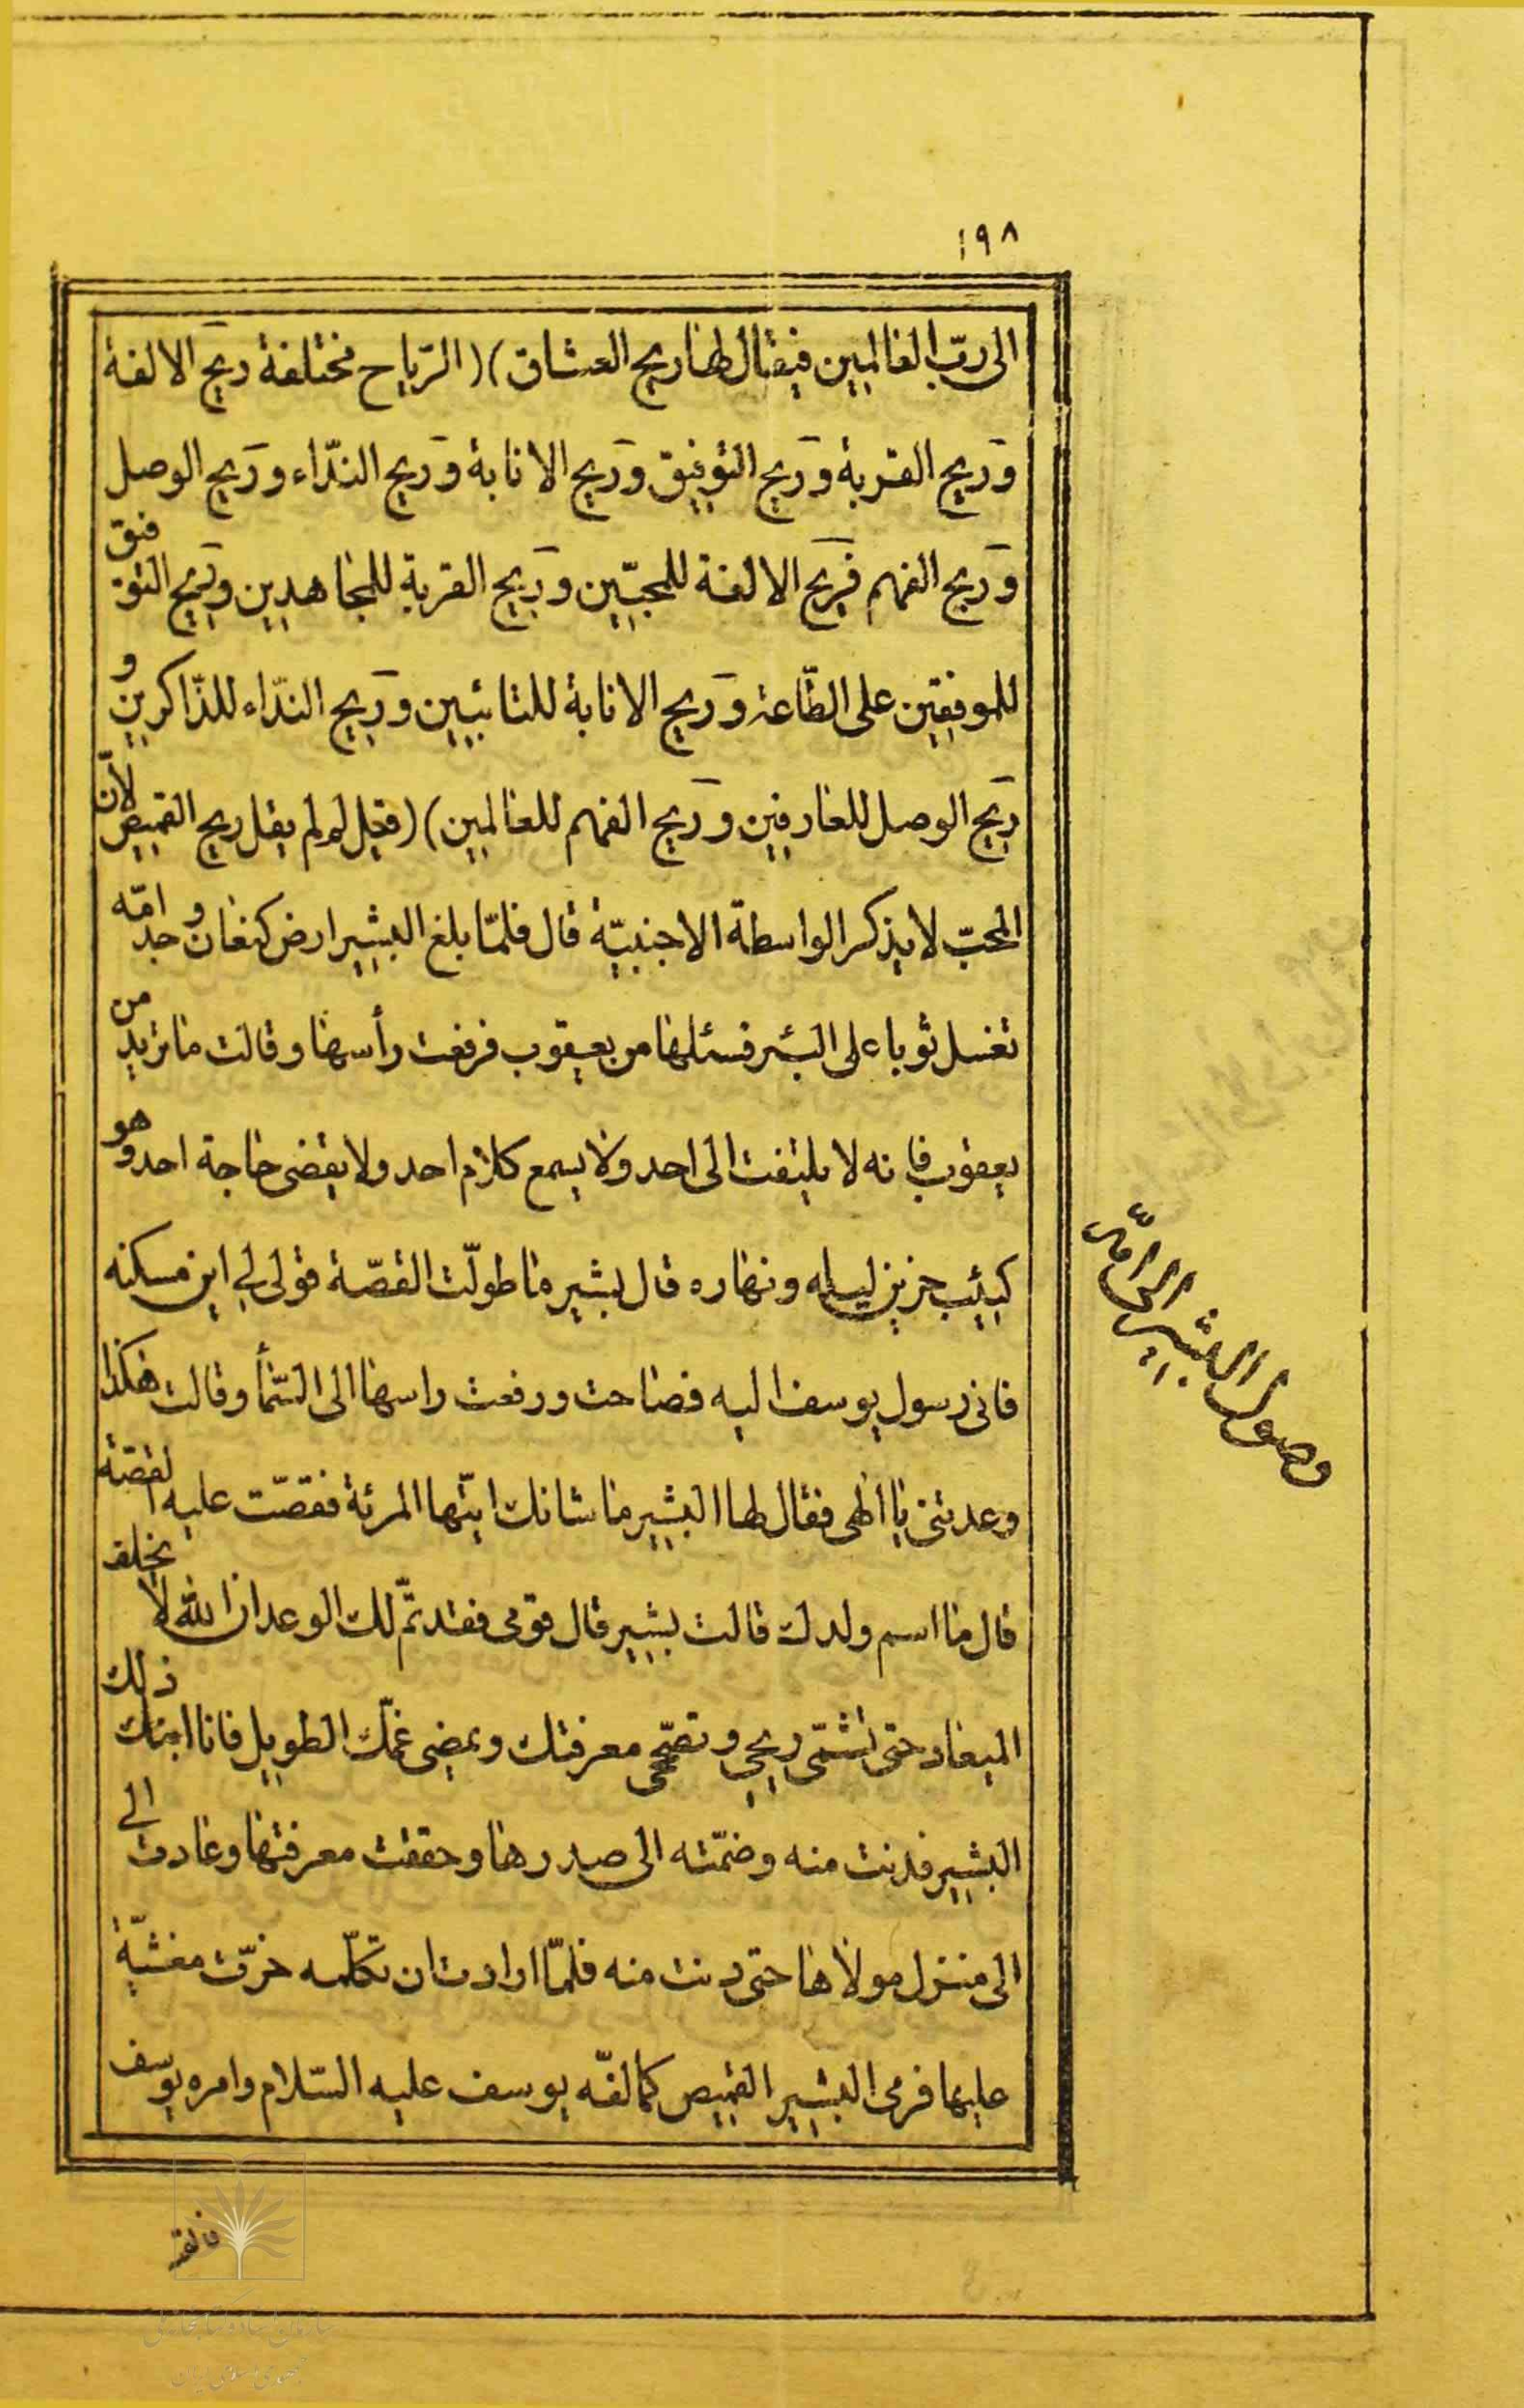 ١٩٨
الى ربّ العالمين فيقال لها ريح العشاق)(الرّياح مختلفة ريح الالفة
وريح القربة وريح التوفيق وريح الانابة وريح النّداء وريح الوصل
وريح الفهم فريح الالفة للمحبّين وريح القربة للمجاهدين وريح التوفيق
للموفقين على الطّاعة وريح الانابة للتائبين وريح النّداء للذّاكرين و
ريح الوصل للعارفين وريح الفهم للعالمين)(فقيل لم لم يقل ريح القميص لأنّ
المحبّ لا يذكر الواسطة الاجنبيّة قال فلمّا بلغ البشير ارض كنعان وجد امّه
تغسل ثوبا على البئر فسئلها من يعقوب فرفعت رأسها وقالت ما تريد من
يعقوب فانه لا يلتفت الى احد ولا يسمع كلام احد ولا يقضى حاجة احد وهو
كئيب حزين ليله ونهاره قال بشير ما طولّت القصّة قولى لى اين مسكنه
فانى رسول يوسف اليه فصاحت ورفعت راسها الى السّمأ وقالت هكذا
وعدتنى يا الهى فقال لها البشير ما شانك ايّتها المرئة فقصّت عليه القصّة
قال ما اسم ولدك قالت بشير قال قومى فقد تمّ لك الوعد ان الله لا يخلف
الميعاد حتى تشمّى ريحى وتصحّى معرفتك ويمضى غمّك الطويل فانا ابنك ذلك
البشير فدنت منه وضمّته الى صدرها وحققت معرفتها وعادت الى
الى منزل مولاها حتى دنت منه فلمّا ارادت ان تكلّمه خرّت مغشيّة
عليها فرمى البشير القميص كما لفّه يوسف عليه السّلام وامره يوسف
وصول البشير الى امّه
فالقه